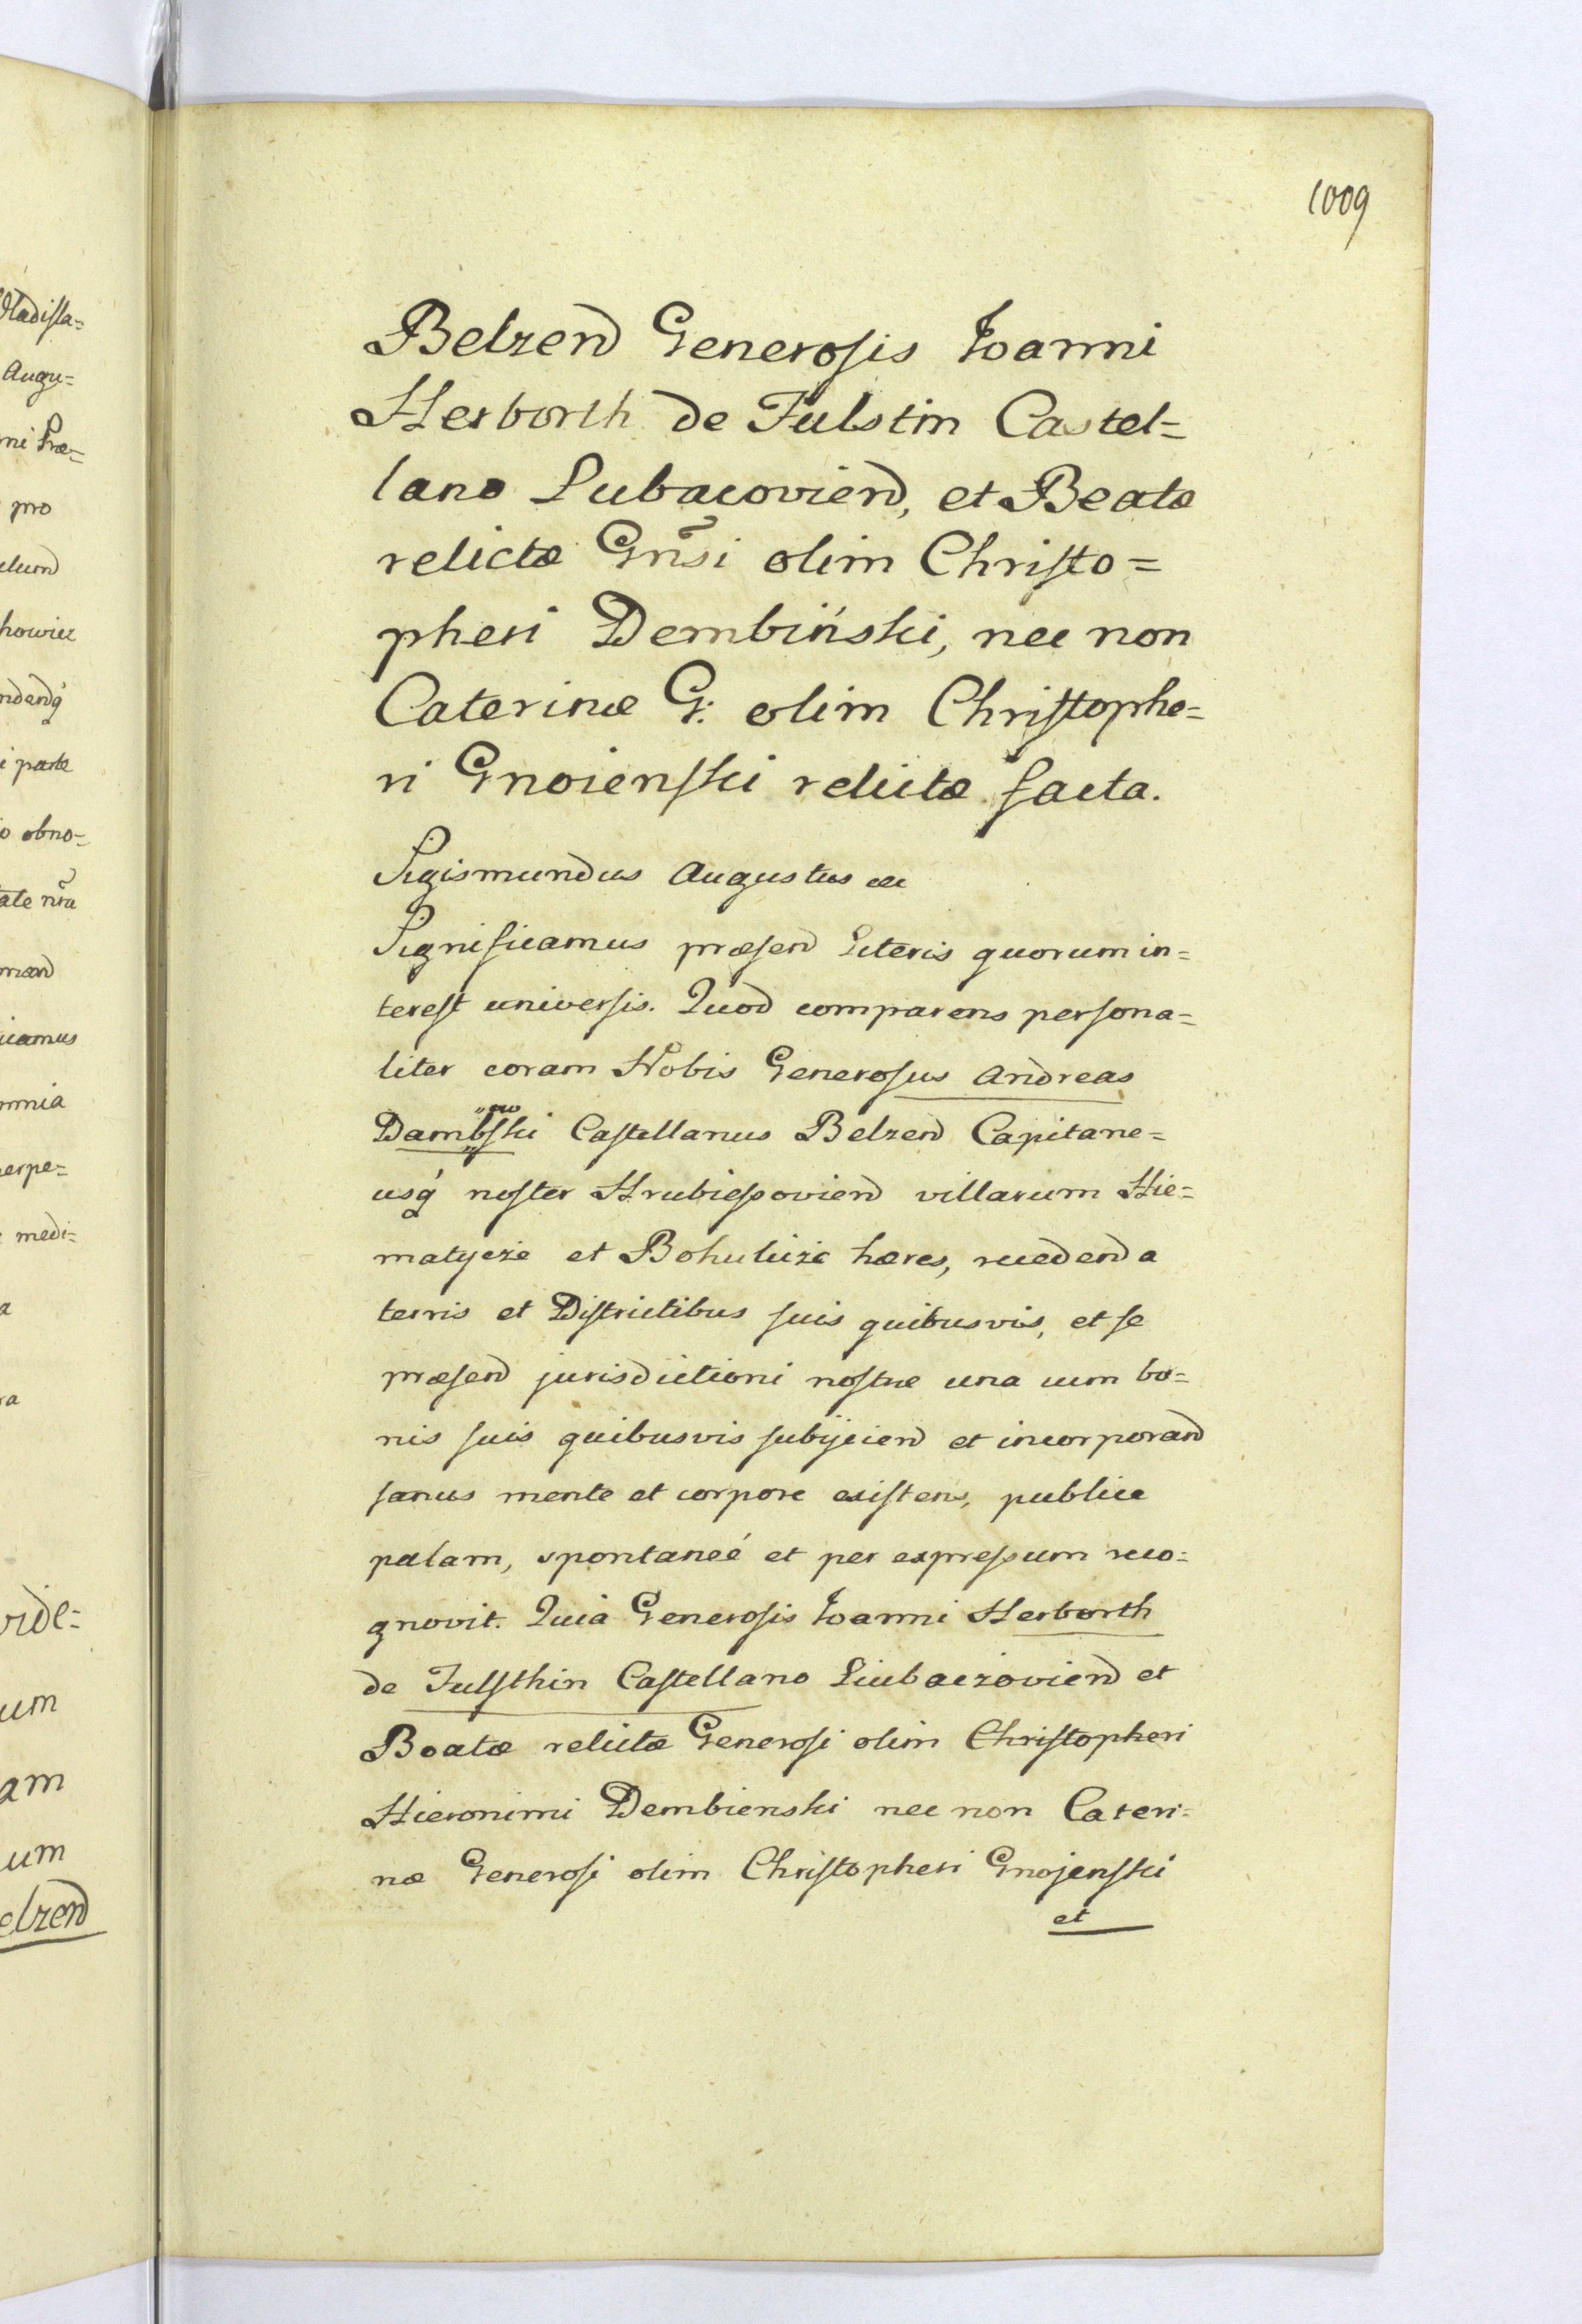 1009
Belzen Generosis Joanni
Herborth de Fulstin Castel=
lano Lubacovien, et Beatæ
relictæ Gnsi olim Christo=
pheri Dembiński, nec non
Caterinæ G: olim Christophe=
ri Gnoienski relictæ facta.
Sigismundus Augustus etc
Significamus præsen Literis quorum in=
terest universis. Quod comparens persona=
liter coram Nobis Generosus Andreas
Dambski Castellanus Belzen Capitane=
usq noster Hrubiessovien villarum Hie=
matycze et Bohuticze hæres, recedend a
terris et Districtibus suis quibusvis, et se
præsen jurisdictioni nostræ una cum bo=
nis suis quibusvis subijcien et incorporand
sanus mente et corpore existens, publice
palam, spontaneé et per expressum reco=
gnovit. Quia Generosis Joanni Herborth
de Fulsthin Castellano Liubaczovien et
Beatæ relictæ Generosi olim Christopheri
Hieronimi Dembienski nec non Cateri=
næ Generosi olim Christopheri Gnojenski
et
Vladisla=
Augu=
ni Præ=
pro
howicz
i parte
o obno=
ate nra
icamus
omnia
perpe=
medi=
vide=
um
am
um
elzen